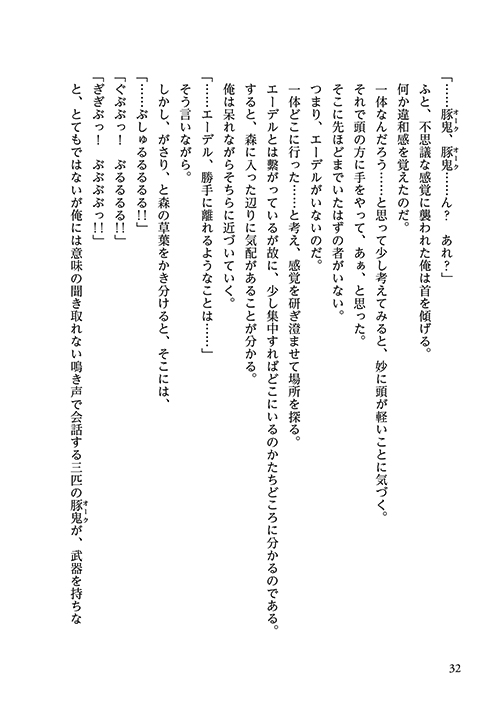 「……豚鬼、豚鬼……ん？　あれ？」
オーク
オーク
ふと、不思議な感覚に襲われた俺は首を傾げる。
何か違和感を覚えたのだ。
一体なんだろう……と思って少し考えてみると、妙に頭が軽いことに気づく。
それで頭の方に手をやって、あぁ、と思った。
そこに先ほどまでいたはずの者がいない。
つまり、エーデルがいないのだ。
一体どこに行った……と考え、感覚を研ぎ澄ませて場所を探る。
エーデルとは繋がっているが故に、少し集中すればどこにいるのかたちどころに分かるのである。
すると、森に入った辺りに気配があることが分かる。
俺は呆れながらそちらに近づいていく。
「……エーデル、勝手に離れるようなことは……」
そう言いながら。
しかし、がさり、と森の草葉をかき分けると、そこには、
「……ぶしゅるるるるる!!」
「ぐぶぶっ！　ぶるるるる!!」
「ぎぎぶっ！　ぶぶぶぶっ!!」
と、とてもではないが俺には意味の聞き取れない鳴き声で会話する三匹の豚鬼が、武器を持ちな
オーク
32